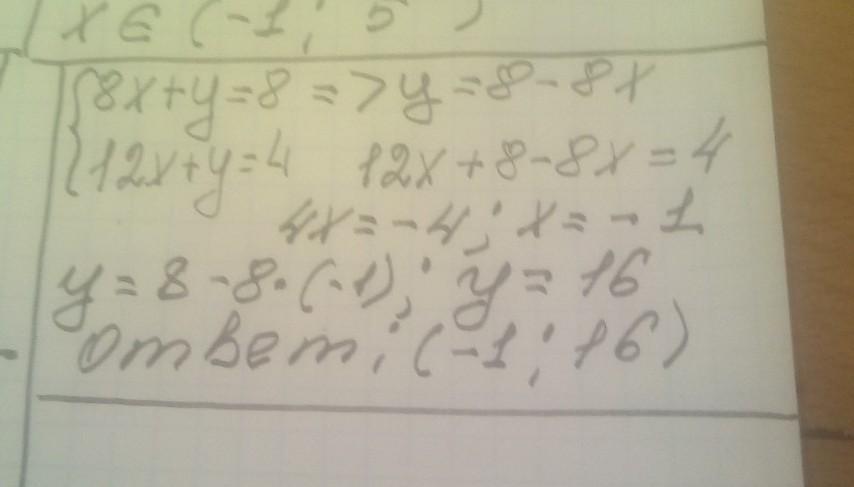 x ∈ (-1; 5)
{8x+y=8 => y=8-8x
{12x+y=4 12x+8-8x=4
4x=-4; x=-1
y=8-8·(-1); y=16
Ответ: (-1; 16)